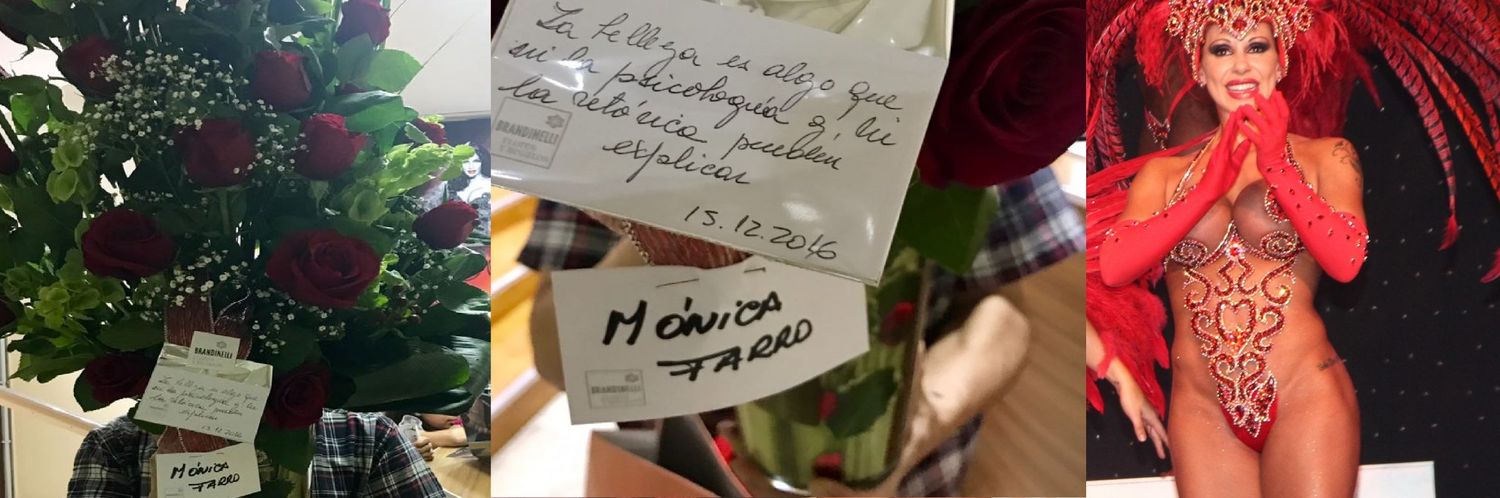 BRANDINELLI
La belleza es algo que
ni la psicología ó ni
la retórica pueden
explicar
15.12.2016
MÓNICA
FARRO
La belleza es algo que
ni la psicología ó ni
la retórica pueden
explicar
BRANDINELLI
15.12.2016
MÓNICA
FARRO
BRANDINELLI